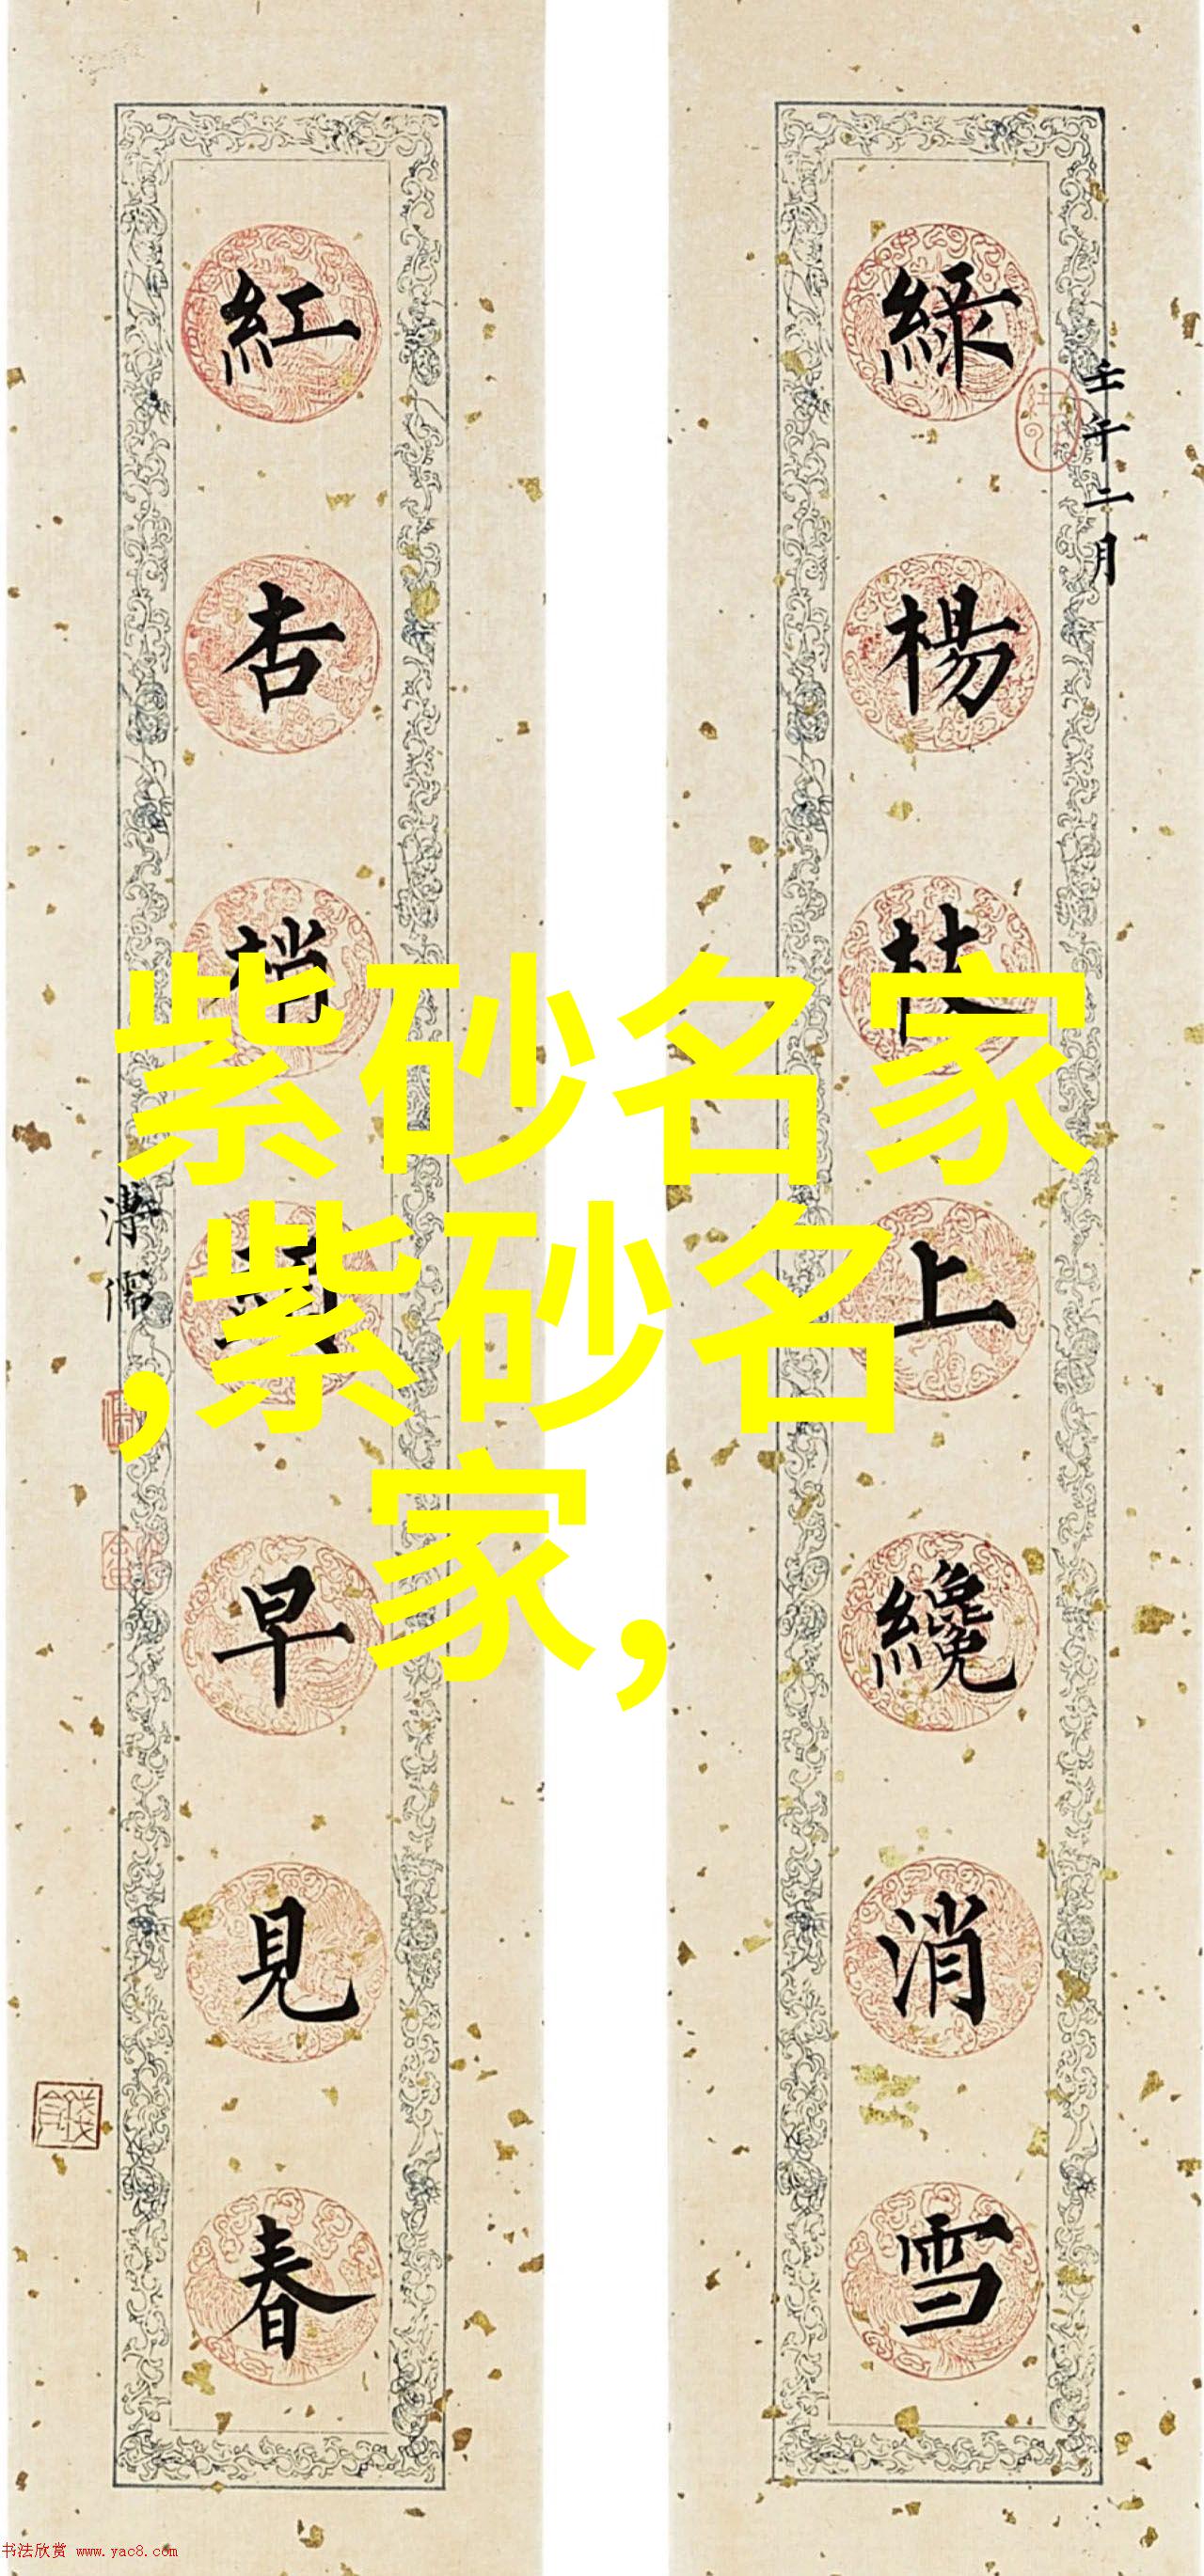 綠楊枝上纔消雪
壬午二月
紅杏梢頭早見春
溥儒
紫砂名家
,紫砂名
家,
书法欣赏 www.yac8.com